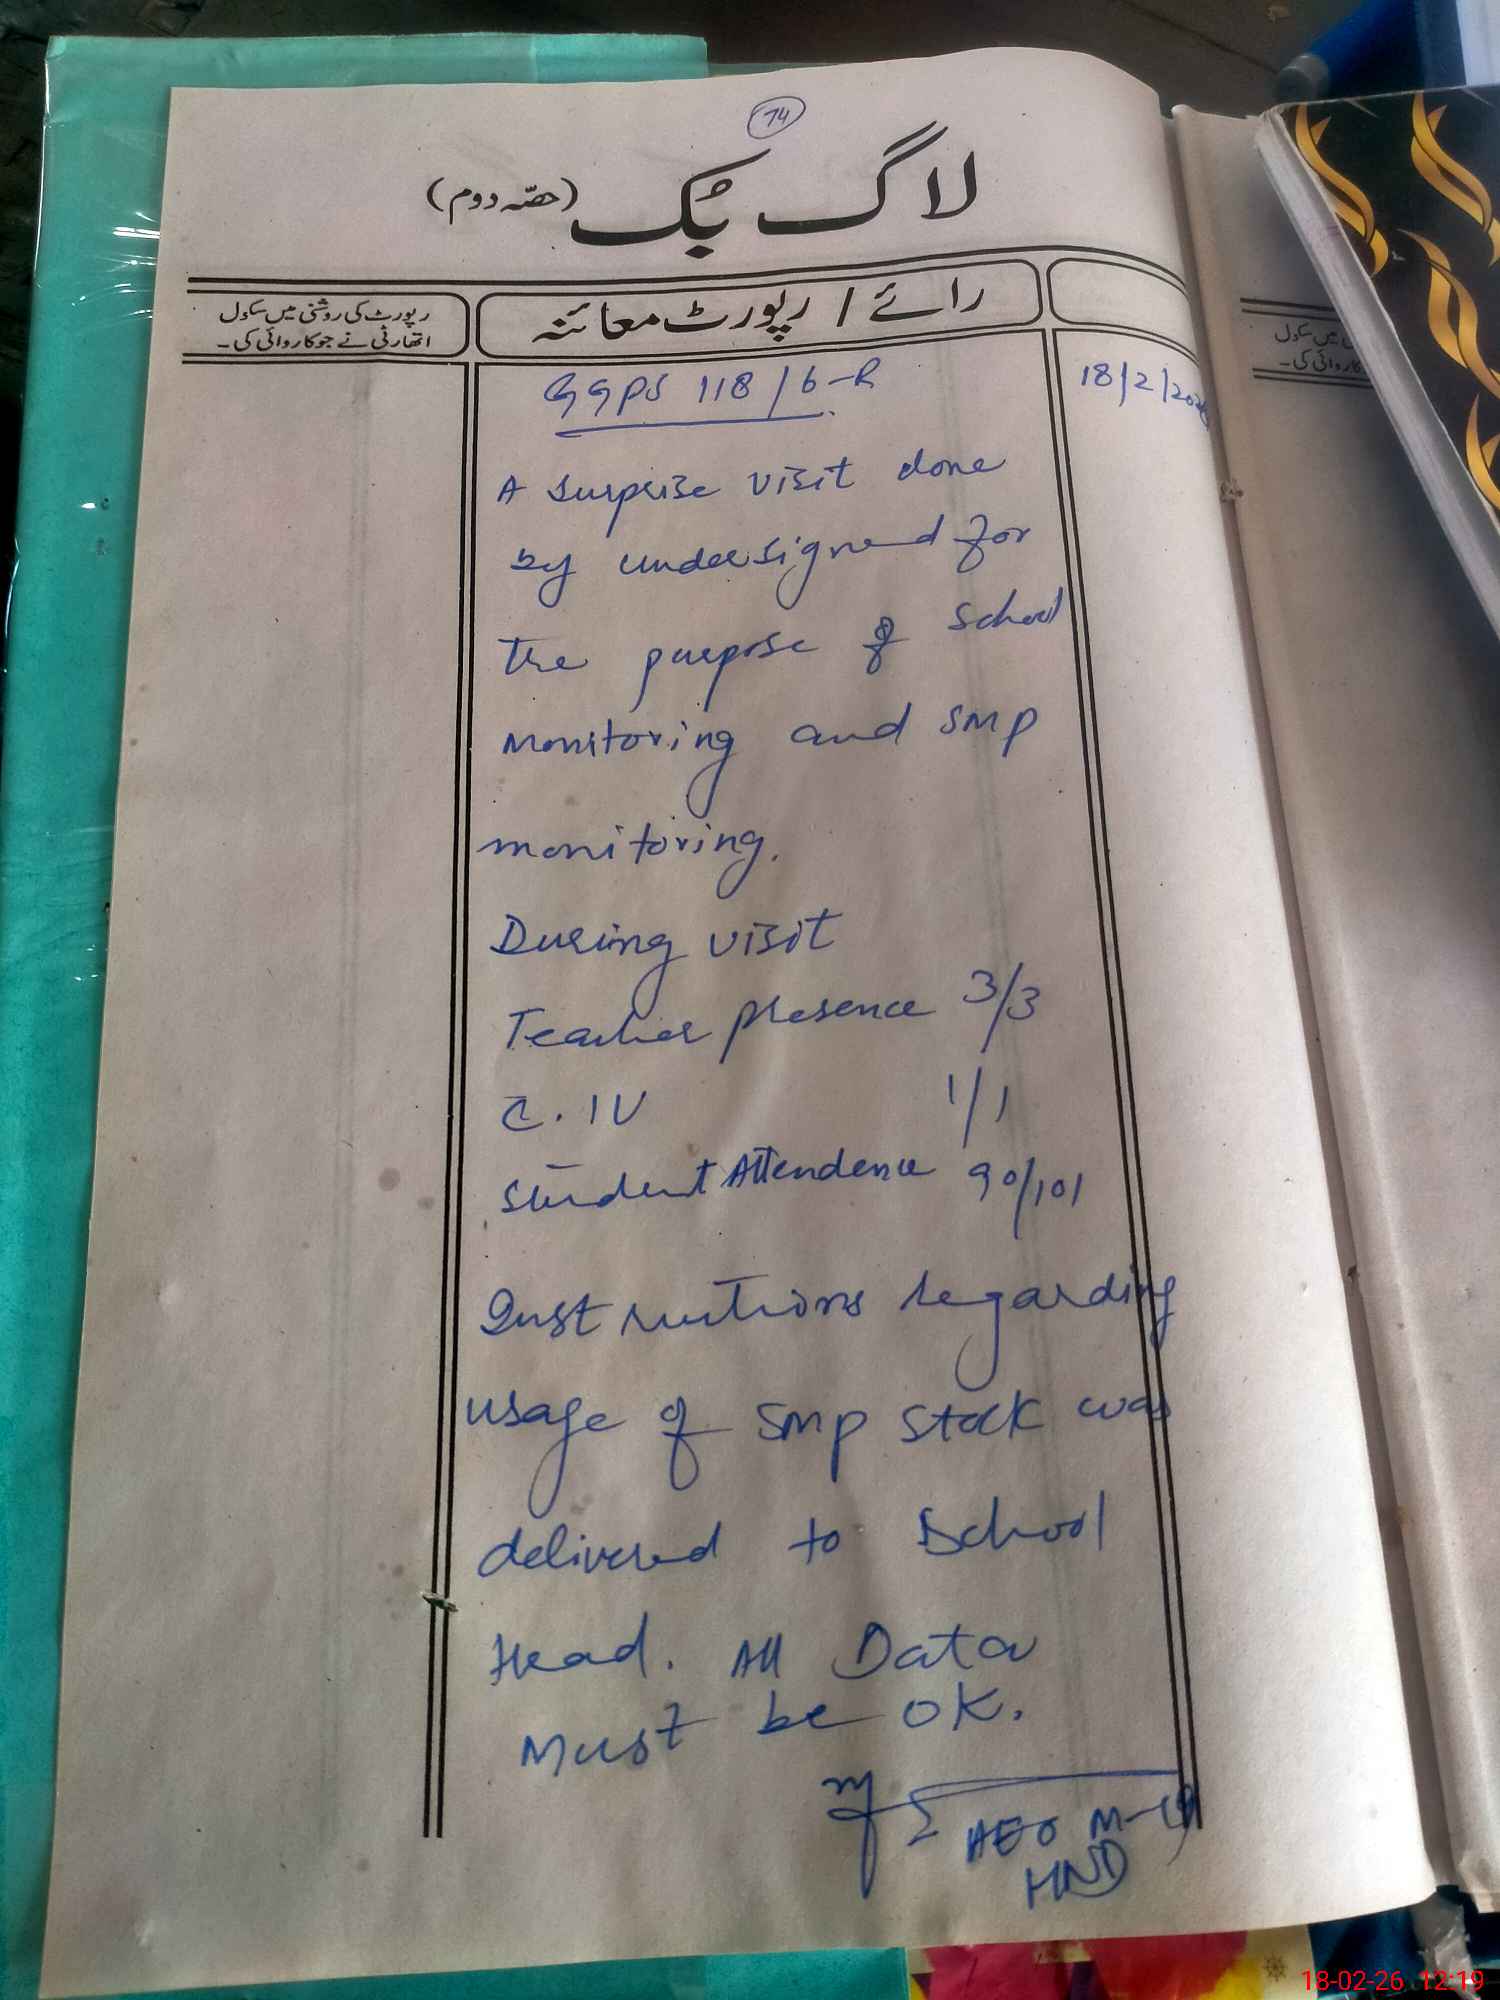 74
لاگ بُک (حصّہ دوم)
رائے / رپورٹ معائنہ
رپورٹ کی روشنی میں سکول
اتھارٹی نے جو کاروائی کی۔
میں سکول
کاروائی کی۔
GGPS 118/6-R
18/2/2026
A surprise visit done
by undersigned for
the purpose of School
monitoring and SMP
monitoring.
During visit
Teacher presence 3/3
C.IV 1/1
Student Attendence 90/101
Instructions regarding
usage of SMP stock was
delivered to School
Head. All Data
must be OK.
AEO M-
HND
18-02-26 12:19